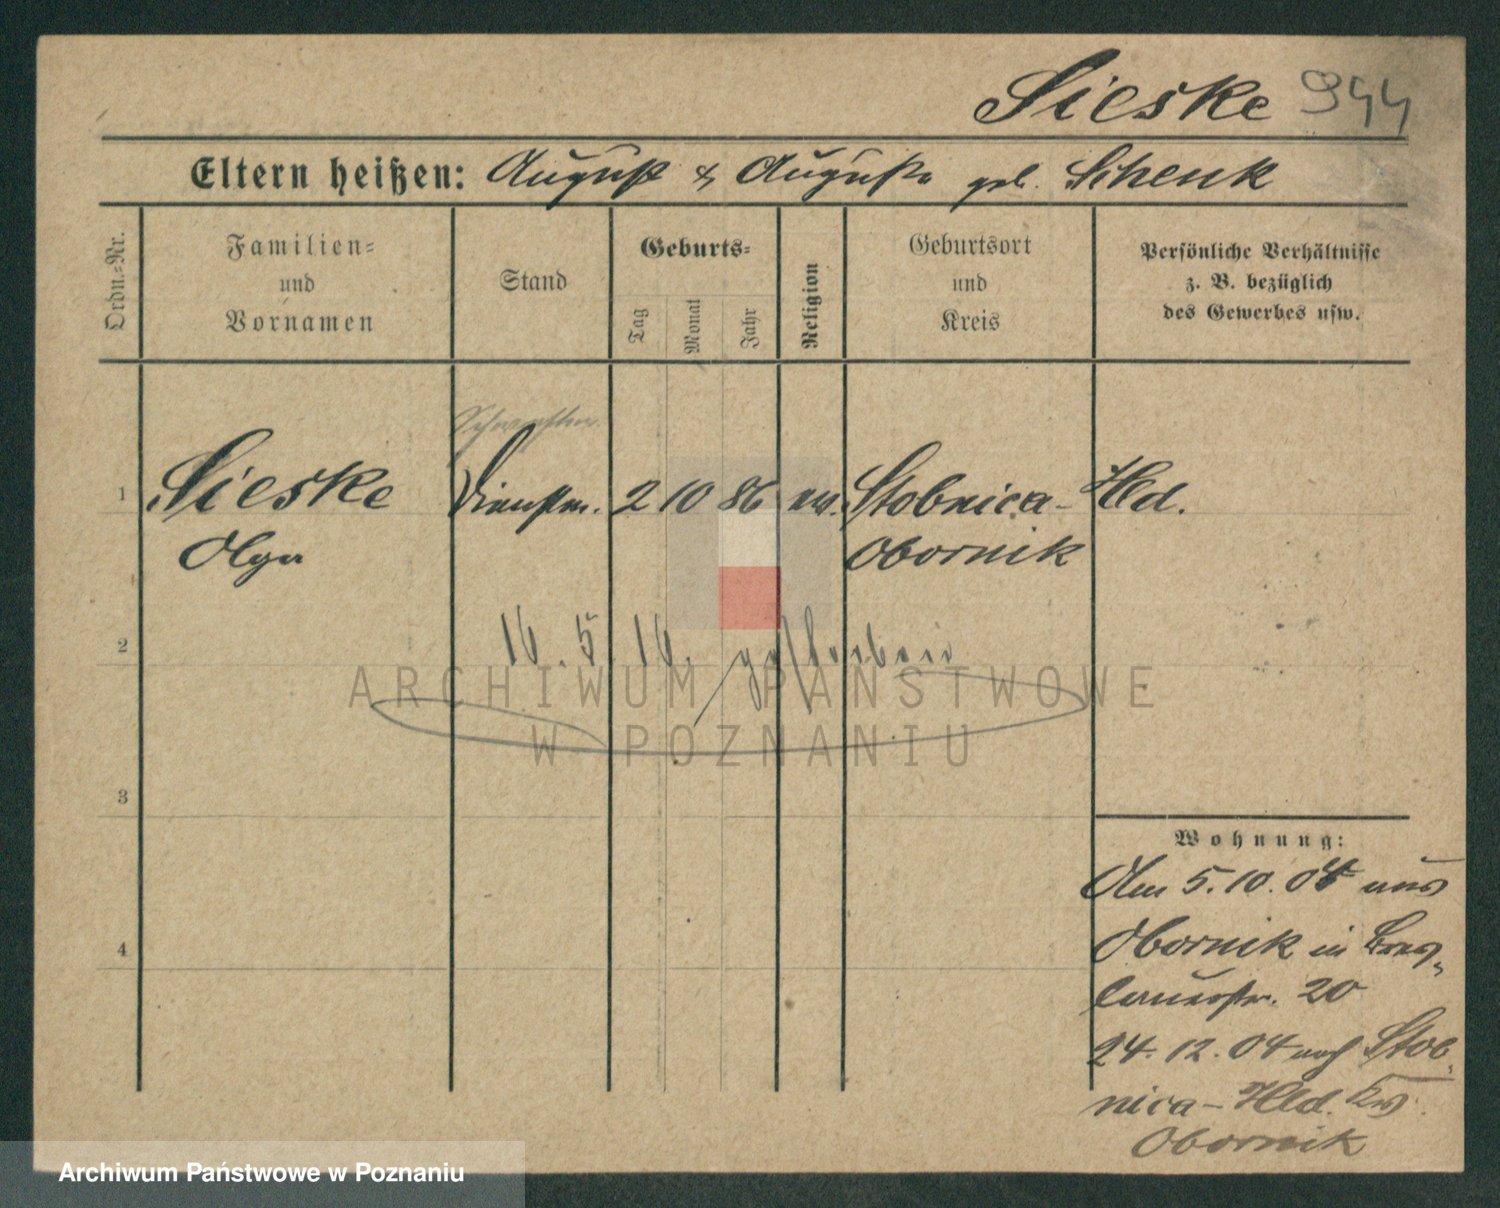 Sieske 944
Eltern heißen: August & Auguste geb. Schenk
Ordn.=Nr.
Familien=
und
Vornamen
Stand
Geburts=
Tag
Monat
Jahr
Religion
Geburtsort
und
Kreis
Persönliche Verhältnisse
z. B. bezüglich
des Gewerbes usw.
1 Sieske Dienstm. 2 10 86 ev. Stobnica- Hld.
Olga Obornik
2 16. 5 16. gestorben
ARCHIWUM PAŃSTWOWE
W POZNANIU
3
Wohnung:
Am 5.10.04 aus
4 Obornik in Bres-
lauerstr. 20
24.12.04 nach Stob-
nica-Hld. Krs
Obornik
Archiwum Państwowe w Poznaniu